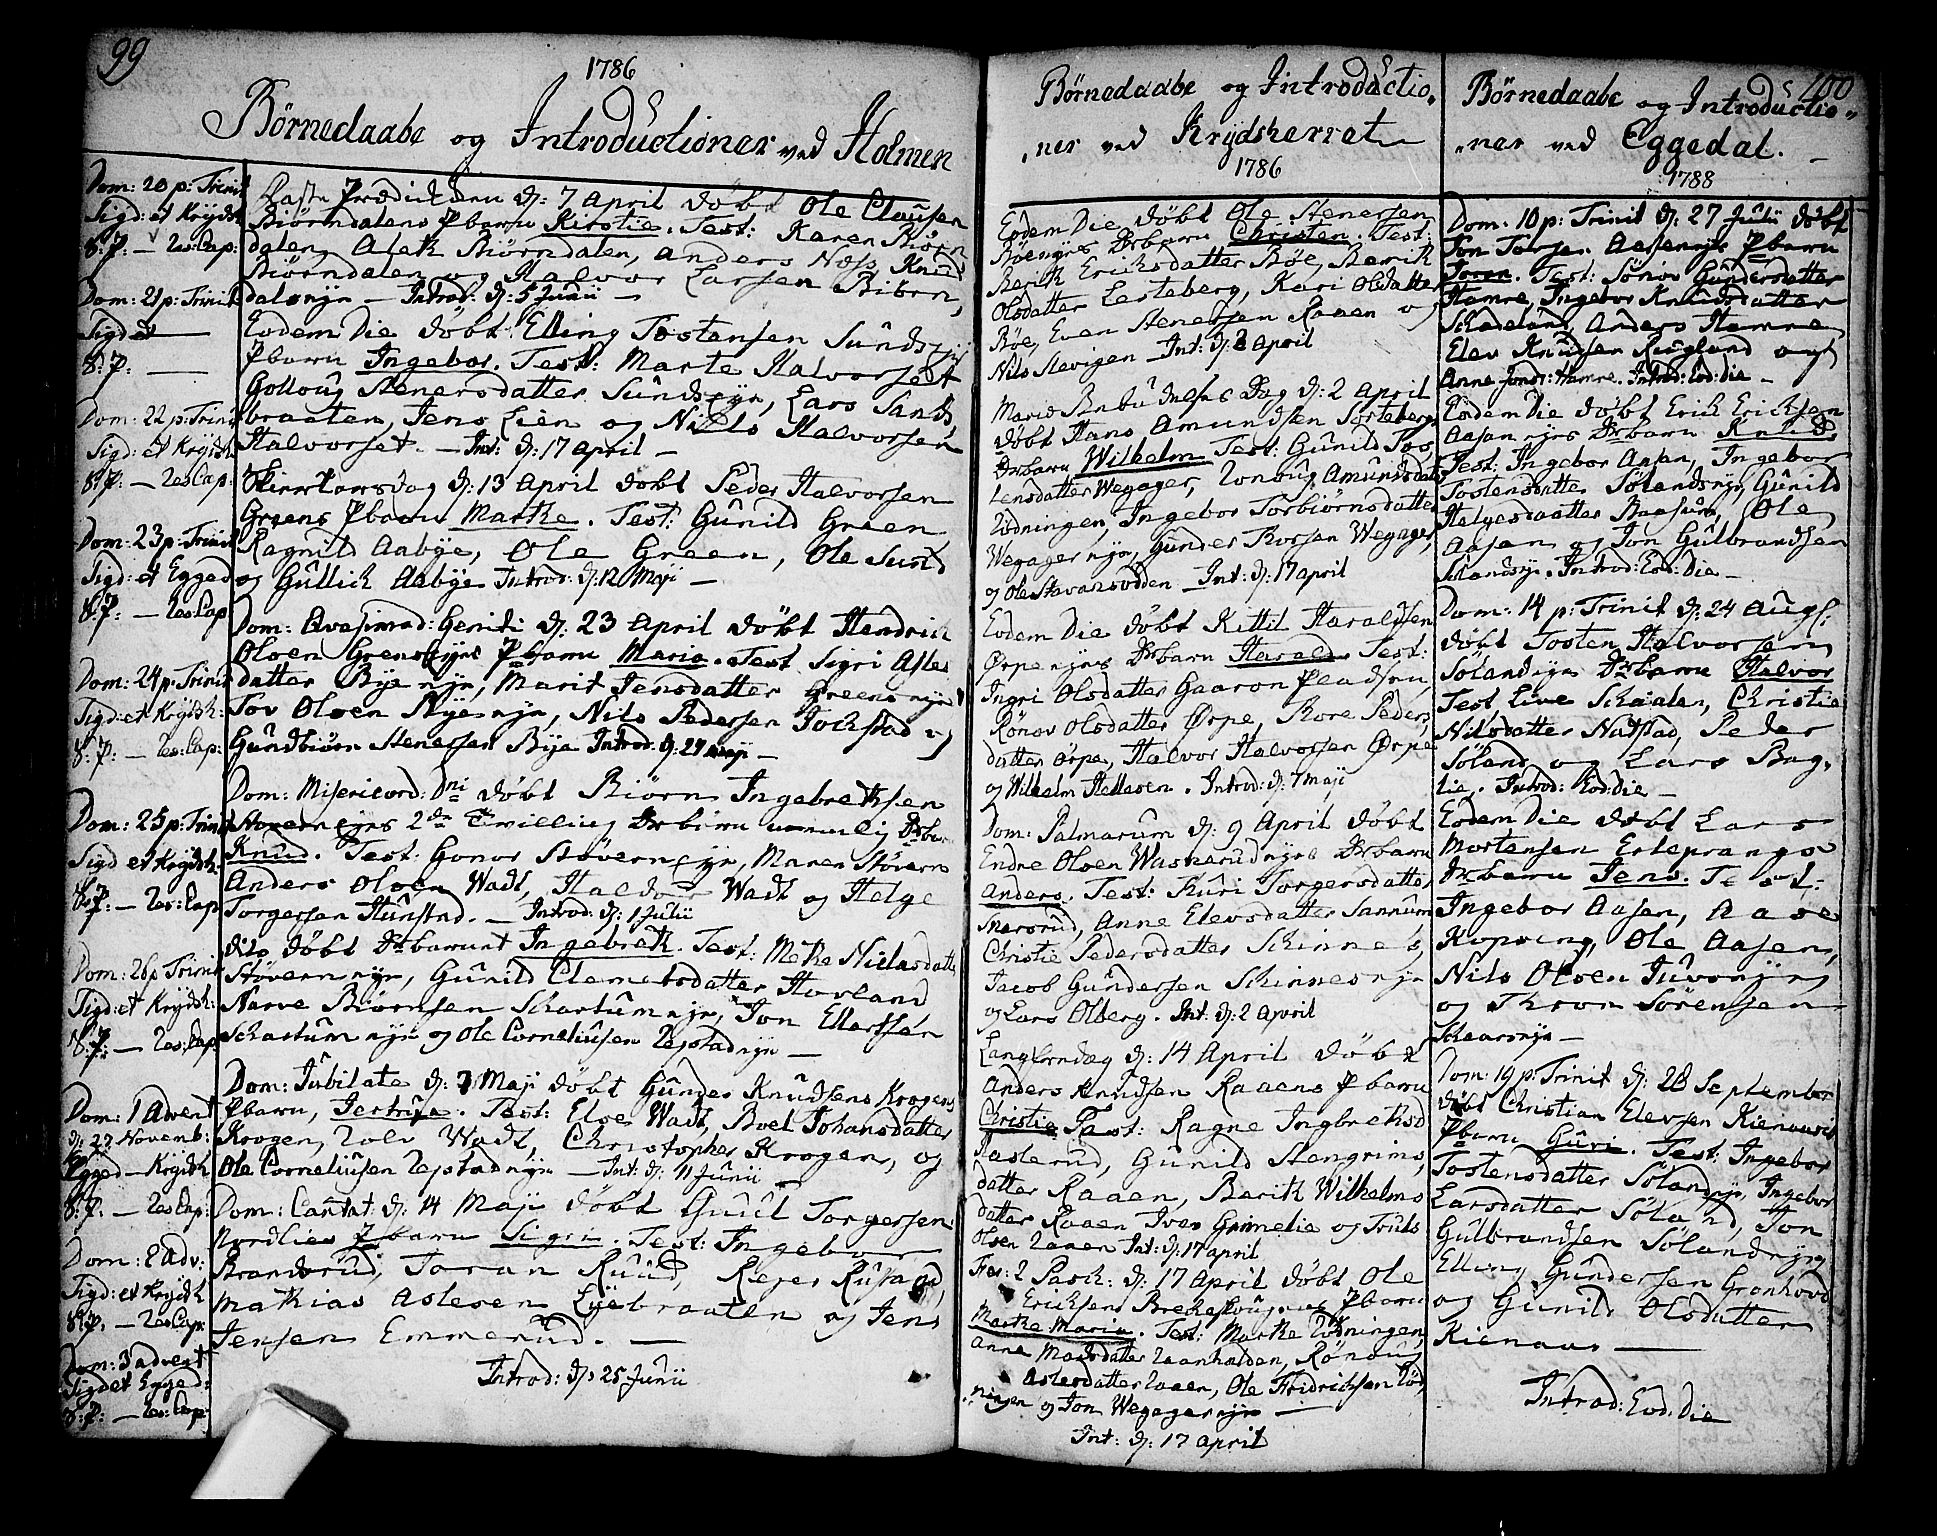 99
1786
Börnedaabe og Introductioner ved Holmen
Dom: 20 p: Trinit
Sigd: et Krydsh
S: P: — Res: Cap:
Dom: 21 p: Trinit
Sigd: et
S: P: —
Dom: 22 p: Trinit
Sigd: et Krydsh
S: P: — Res: Cap:
Dom: 23 p: Trinit
Sigd: et Egged
S: P: — Res: Cap
Dom: 24 p: Trinit
Sigd: et Krydsh:
S: P: — Res: Cap:
Dom: 25 p: Trinit
Sigd et Krydsh
S: P: — Res: Cap
Dom: 26 p Trinit
Sigd: et Krydsh:
S: P: — Res: Cap:
Dom: 1 Advent
d: 27 Novemb:
Egged — Krydsh
S: P. — Res Cap:
Dom: 2 Adv:
Sigd: et Krydsh
S: P. — Res Cap:
Dom: 3 advent
Sigd et Egged:
S: P: — Res: Cap:
Faste Prædiken d: 7 April döbt Ole Clausen
Biörndalens Pbarn Kirstie. Test: Karen Biörn
dalen, Aleth Biörndalen, anders Næss, Knud
Biörndalen og Halvor Larsen Biörn,
dalsnyn — Introd: d: 5 Junii —
Eodem Die döbt Elling Tostensen Sunds
Pbarn Ingebor. Test: Marte Halvorset
Gollaug Stenersdatter Sundseyn, Lars Sands
braaten, Jens Lien og Niels Halvorsen
Halvorset. — Int: d: 17 april —
Skiertorsdag d: 13 April döbt Peder Halvorsen
Greens Pbarn Marthe. Test: Gunild Green
Ragnild Aabye, Ole Green, Ole Sund
og Gullich Aabye Introd: d: 12 Maji —
Dom: Qvasimod: Geniti d: 23 April döbt Hendrich
Olsen Grenseyns Pbarn Maria. Test Sigri Asles
datter Bye nyn, Marit Jensdatter Greens nyn
Tov Olsen Nye nyn, Nils Pedersen Jochstad og
Gundbiörn Stenersen Bye Introd: d: 29 maji —
Dom: Misericord: Dni döbt Biörn Ingebrethsen
Stoverneyns 2de Tvilling Drbörn nemlig Drbarn
Knud. Test: Gonor Stövern eyn, Maren Stövern
Anders Olsen Wadt, Haldor Wadt og Helge
Torgersen Hunstad. — Introd: d: 1 Julii
dito döbt Drbarnet Ingebreth. Test: Methe Nielsdatter
Stövern nyn, Gunild Clemetsdatter Hovland
Narve Biörnsen Schartum nyn, Jon Ellertsen
Schartum nyn og Ole Corneliusen Repstadnyn —
Dom: Jubilate d: 7 Maji döbt Gunder Knudsens Krogens
Pbarn, Jertrud. Test: Eloe Wadt, Boel Johansdatter
Krogen, Rolv Wadt, Christopher Krogen, og
Ole Corneliusen Repstadnyn — Int: d: 11 Junii
Dom: Cantat: d: 14 Maji döbt Guul Torgersen
Nordlies Pbarn Sigri. Test: Ingebor
Brandsrud, Joran Ruud, Reyer Rustad,
Mathias Aslesen Lyebraaten og Jens
Jensen Emmerud. —
Introd: d: 25 Junii
Börnedaabe og Introductio„
„ner ved Krydsherret
1786
Eodem Die döbt Ole Stenersen
Böenyns Drbarn Christen. Test:
Berith Ericksdatter Böe, Berith
Olsdatter Lesteberg, Kari Olsdatter
Böe, Even Stenersen Raaen og
Nils Slevigen — Int: d: 8 April
Mariæ Bebudelses Dag d: 2 April
döbt Hans Amundsen Sorteberg
Drbarn Wilhelm Test: Gunild Tos
tensdatter Wegager, Ronoug Amundsdatter
Rödningen, Ingebor Torbiörnsdatter
Wegager nyn, Gunder Thorsen Wegager,
og Ole Stavansvodden — Int: d: 17 april
Eodem Die döbt Kittil Haraldsen
Örpe nyns Drbarn Harald. Test:
Ingri Olsdatter Gaaron Pladsen,
Rönov Olsdatter Örpe, Thore Peders,
datter Örpe, Halvor Halvorsen Örpe
og Wilhelm Hellesen. Introd: d: 7 maji
Dom: Palmarum d: 9 April döbt
Endre Olsen Waskerudnyns Drbarn
Anders. Test: Thuri Torgersdatter,
Snersrud, Anne Elevsdatter Sannum
Christie Pedersdatter Schinnes,
Jacob Gundersen Schinnes nyn
og Lars Olberg. Int: d: 2 april
Langfredag d: 14 April döbt
Anders Knudsen Raaens Pbarn
Christie Test: Ragne Ingbrethsd
Hasterud, Gunild Stengrims,
datter Raaen, Berith Wilhelms
datter Raaen Iver Grimelie og Truls
Olsen Raaen Int: d: 17 april
Fer: 2 Pasch: d: 17 April döbt Ole
Ericksen Brekkehougens Pbarn
Marthe Maria. Test: Marthe Rödningen,
Anne Madsdatter Raanhalden, Rönoug
Aslesdatter Raaen, Ole Fridrichsen Röd,
„ningen og Jon Wegager nyn —
Int: d: 17 April
100
Börnedaabe og Introductio„
„ner ved Eggedal. —
1788
Dom: 10 p: Trinit d: 27 Julii döbt
Jon Torsen Aasenyns Pbarn
Joren. Test: Sönov Gundersdatter
Hamre, Ingebor Knudsdatter
Schadeland, Anders Hamre
Elev Knudsen Rugland og
Anne Jonsd: Hamre. Introd: Eod: die —
Eodem Die döbt Erik Ericksen
Aasannyns Drbarn Knud.
Test: Ingebor Aasan, Ingebor
Tostensdatter Sölandsnyn, Gunild
Helgesdaatter Baasum, Ole
Aasen og Jon Gulbrandsen
Sölandnyn. Introd: Eod: Die —
Dom: 14 p: Trinit d: 24 Aug:
döbt Tosten Halvorsen
Sölandnyn Drbarn Halvor
Test Live Schaalen, Christie
Nilsdatter Natstad, Peder
Söland og Lars Bag,
lie. Introd: Eod: die —
Eodem Die döbt Lars
Mortensen Erteprangs
Drbarn Jens. Test:
Ingebor Aasen, Aase
Kopseng, Ole Aasen,
Nils Olsen Juvsnyn
og Thron Sörensen
Schearsnyn —
Dom: 19 p: Trinit d: 28 September
döbt Christian Elevsen Kienaasis
Pbarn Guri. Test: Ingebor
Tostensdatter Sölandnyn, Ingebor
Larsdatter Söland, Jon
Gulbrandsen Sölandnyn,
Elling Gundersen Gronhovd
og Gunild Olsdatter
Kienaas —
Introd: Eod: Die